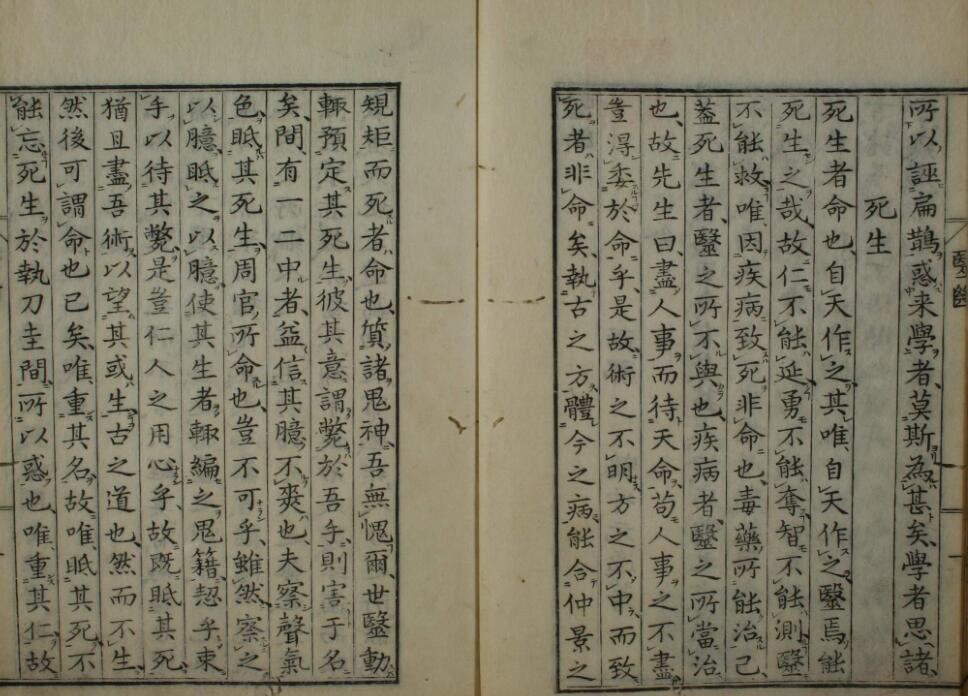 所以誣扁鵲惑来學者、莫斯為甚矣、學者思諸、
死生
死生者命也、自天作之、其唯自天作之、醫焉能
死生之哉、故仁不能延、勇不能奪、智不能測、醫
不能救、唯因疾病致死、非命也、毒藥所能治已、
蓋死生者、醫之所不與也、疾病者、醫之所當治
也、故先生曰、盡人事而待天命、苟人事之不盡、
豈得委於命乎、是故術之不明、方之不中、而致
死者、非命矣、執古之方、體今之病、能合仲景之
規矩而死者、命也、質諸鬼神、吾無愧爾、世醫動
輙預定其死生、彼其意謂、斃於吾手、則害于名
矣、間有一二中者、益信其臆不爽也、夫察聲氣
色、眂其死生、周官所命也、豈不可乎、雖然、察之
以臆、眂之以臆、使其生者輙編之鬼籍、恝乎束
手、以待其斃、是豈仁人之用心乎、故既眂其死、
猶且盡吾術、以望其或生、古之道也、然而不生、
然後可謂命也已矣、唯重其名、故唯眂其死、不
能忘死生於執刀圭間、所以惑也、唯重其仁、故
醫